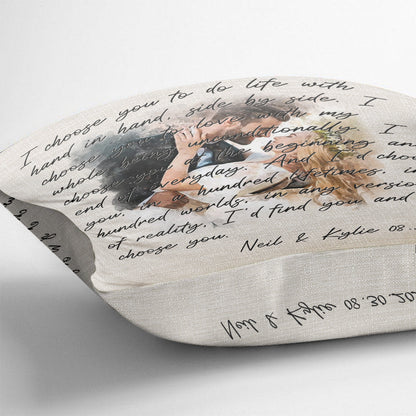 I choose you to do life with
hand in hand, side by side. I
choose you to love with my
whole being unconditionally. I
choose you at the beginning and
end of everyday. And I'd choose
you, in a hundred lifetimes, in a
hundred worlds, in any version
of reality, I'd find you and
choose you.
Neil & Kylie 08
Neil & Kylie 08.30.20